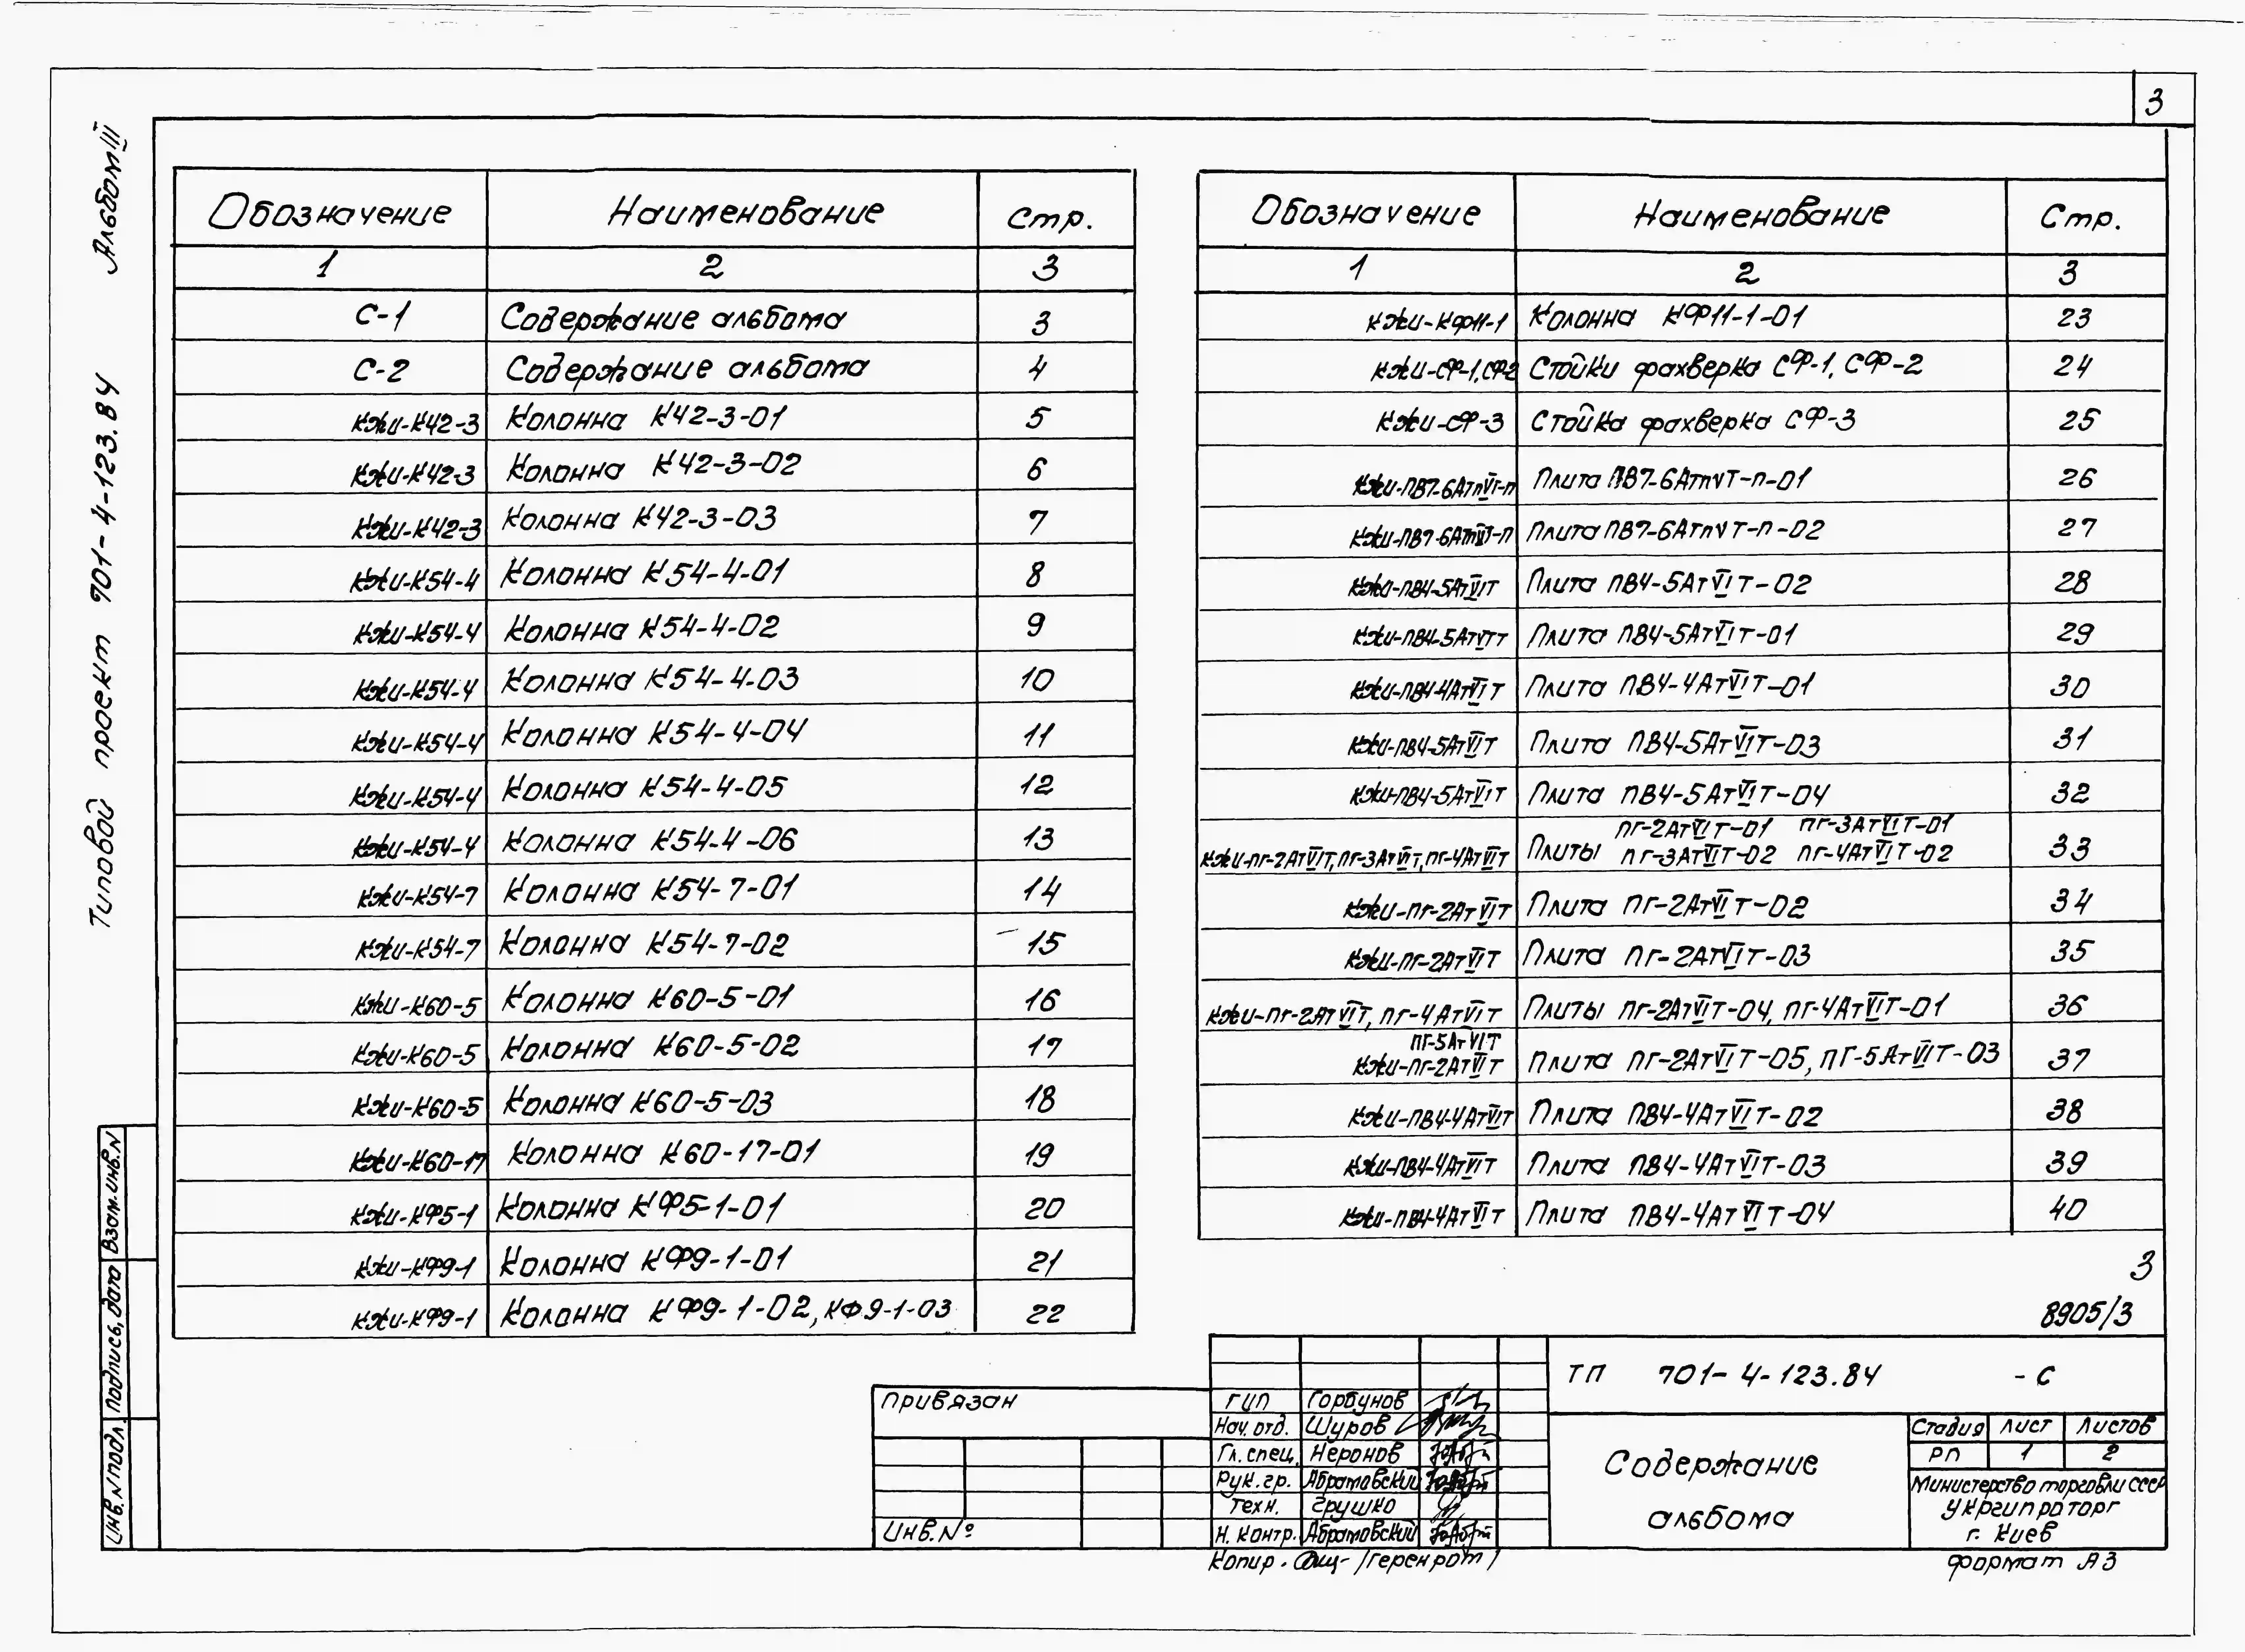 3
Альбом III
Типовой проект 701-4-123.84
Обозначение Наименование Стр.
1 2 3
С-1 Содержание альбома 3
С-2 Содержание альбома 4
КЖИ-К42-3 Колонна К42-3-01 5
КЖИ-К42-3 Колонна К42-3-02 6
КЖИ-К42-3 Колонна К42-3-03 7
КЖИ-К54-4 Колонна К54-4-01 8
КЖИ-К54-4 Колонна К54-4-02 9
КЖИ-К54-4 Колонна К54-4-03 10
КЖИ-К54-4 Колонна К54-4-04 11
КЖИ-К54-4 Колонна К54-4-05 12
КЖИ-К54-4 Колонна К54-4-06 13
КЖИ-К54-7 Колонна К54-7-01 14
КЖИ-К54-7 Колонна К54-7-02 15
КЖИ-К60-5 Колонна К60-5-01 16
КЖИ-К60-5 Колонна К60-5-02 17
КЖИ-К60-5 Колонна К60-5-03 18
КЖИ-К60-17 Колонна К60-17-01 19
КЖИ-КФ5-1 Колонна КФ5-1-01 20
КЖИ-КФ9-1 Колонна КФ9-1-01 21
КЖИ-КФ9-1 Колонна КФ9-1-02, КФ9-1-03 22
Обозначение Наименование Стр.
1 2 3
КЖИ-КФ11-1 Колонна КФ11-1-01 23
КЖИ-СФ-1, СФ-2 Стойки фахверка СФ-1, СФ-2 24
КЖИ-СФ-3 Стойка фахверка СФ-3 25
КЖИ-ПВ7-6АтпVТ-п Плита ПВ7-6АтпVТ-п-01 26
КЖИ-ПВ7-6АтпVТ-п Плита ПВ7-6АтпVТ-п-02 27
КЖИ-ПВ4-5АтVIТ Плита ПВ4-5АтVIТ-02 28
КЖИ-ПВ4-5АтVIТ Плита ПВ4-5АтVIТ-01 29
КЖИ-ПВ4-4АтVIТ Плита ПВ4-4АтVIТ-01 30
КЖИ-ПВ4-5АтVIТ Плита ПВ4-5АтVIТ-03 31
КЖИ-ПВ4-5АтVIТ Плита ПВ4-5АтVIТ-04 32
ПГ-2АтVIТ-01 ПГ-3АтVIТ-01
КЖИ-ПГ-2АтVIТ, ПГ-3АтVIТ, ПГ-4АтVIТ Плиты ПГ-3АтVIТ-02 ПГ-4АтVIТ-02 33
КЖИ-ПГ-2АтVIТ Плита ПГ-2АтVIТ-02 34
КЖИ-ПГ-2АтVIТ Плита ПГ-2АтVIТ-03 35
КЖИ-ПГ-2АтVIТ, ПГ-4АтVIТ Плиты ПГ-2АтVIТ-04, ПГ-4АтVIТ-01 36
ПГ-5АтVIТ
КЖИ-ПГ-2АтVIТ Плита ПГ-2АтVIТ-05, ПГ-5АтVIТ-03 37
КЖИ-ПВ4-4АтVIТ Плита ПВ4-4АтVIТ-02 38
КЖИ-ПВ4-4АтVIТ Плита ПВ4-4АтVIТ-03 39
КЖИ-ПВ4-4АтVIТ Плита ПВ4-4АтVIТ-04 40
3
8905/3
Взам.инв.N
Подпись, дата
Инв.N подл.
Привязан
Инв.№
ГИП Горбунов
Нач. отд. Шуров
Гл. спец. Неронов
Рук. гр. Абрамовский
Техн. Грушко
Н. контр. Абрамовский
ТП 701-4-123.84 -С
Содержание
альбома
Стадия Лист Листов
РП 1 2
Министерство торговли СССР
Укргипроторг
г. Киев
Копир.
Формат А3